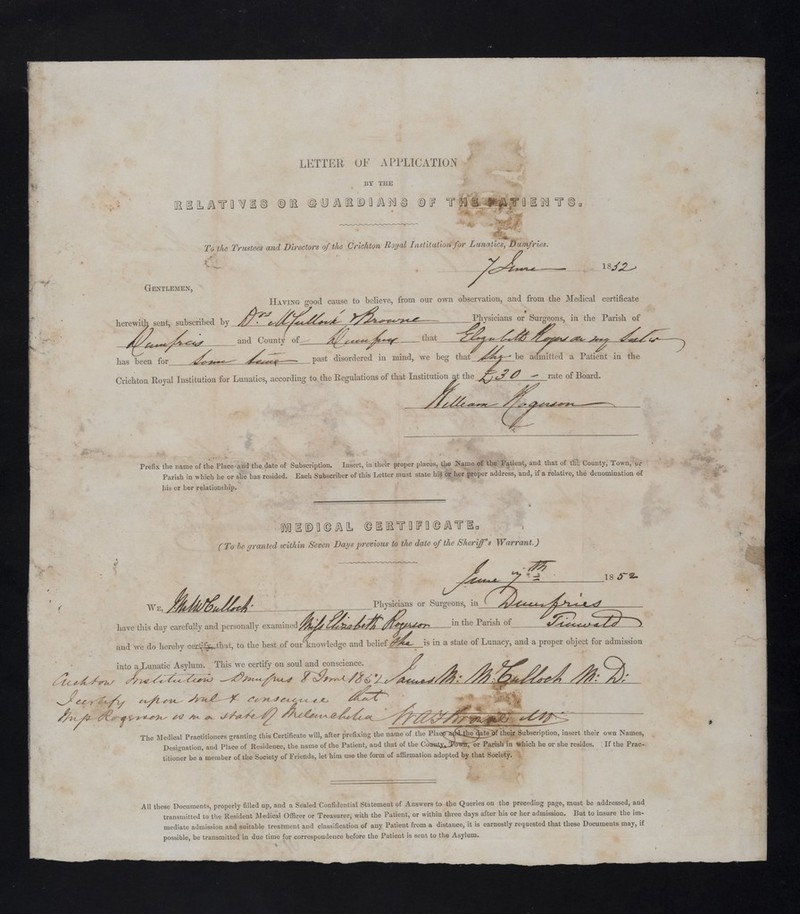 LETTER OF APPLICATION
BY THE
RELATIVES OR GUARDIANS OF THE PATIENTS.
To the Trustees and Directors of the Crichton Royal Institution for Lunatics, Dumfries.
7 June 1852
GENTLEMEN,
HAVING good cause to believe, from our own observation, and from the Medical certificate
herewith sent, subscribed by Drs McCulloch & Browne Physicians or Surgeons, in the Parish of
Dumfries and County of Dumfries that Elizabeth Rogerson my Sister
has been for some time past disordered in mind, we beg that She be admitted a Patient in the
Crichton Royal Institution for Lunatics, according to the Regulations of that Institution at the £30 - rate of Board.
William Rogerson
Prefix the name of the Place and the date of Subscription. Insert, in their proper places, the Name of the Patient, and that of the County, Town, or
Parish in which he or she has resided. Each Subscriber of this Letter must state his or her proper address, and, if a relative, the denomination of
his or her relationship.
MEDICAL CERTIFICATE.
(To be granted within Seven Days previous to the date of the Sheriff's Warrant.)
June 7th 1852
WE, McCulloch Physicians or Surgeons, in Dumfries
have this day carefully and personally examined Miss Elizabeth Rogerson in the Parish of Tinwald
and we do hereby certify that, to the best of our knowledge and belief She is in a state of Lunacy, and a proper object for admission
into a Lunatic Asylum. This we certify on soul and conscience.
James M: McCulloch M: D:
Crichton Institution Dumfries 8 June
I certify upon soul & conscience that
Miss Rogerson is in a state of Melancholia
The Medical Practitioners granting this Certificate will, after prefixing the name of the Place and the date of their Subscription, insert their own Names,
Designation, and Place of Residence, the name of the Patient, and that of the County, Town, or Parish in which he or she resides. If the Prac-
titioner be a member of the Society of Friends, let him use the form of affirmation adopted by that Society.
All these Documents, properly filled up, and a Sealed Confidential Statement of Answers to the Queries on the preceding page, must be addressed, and
transmitted to the Resident Medical Officer or Treasurer, with the Patient, or within three days after his or her admission. But to insure the im-
mediate admission and suitable treatment and classification of any Patient from a distance, it is earnestly requested that these Documents may, if
possible, be transmitted in due time for correspondence before the Patient is sent to the Asylum.